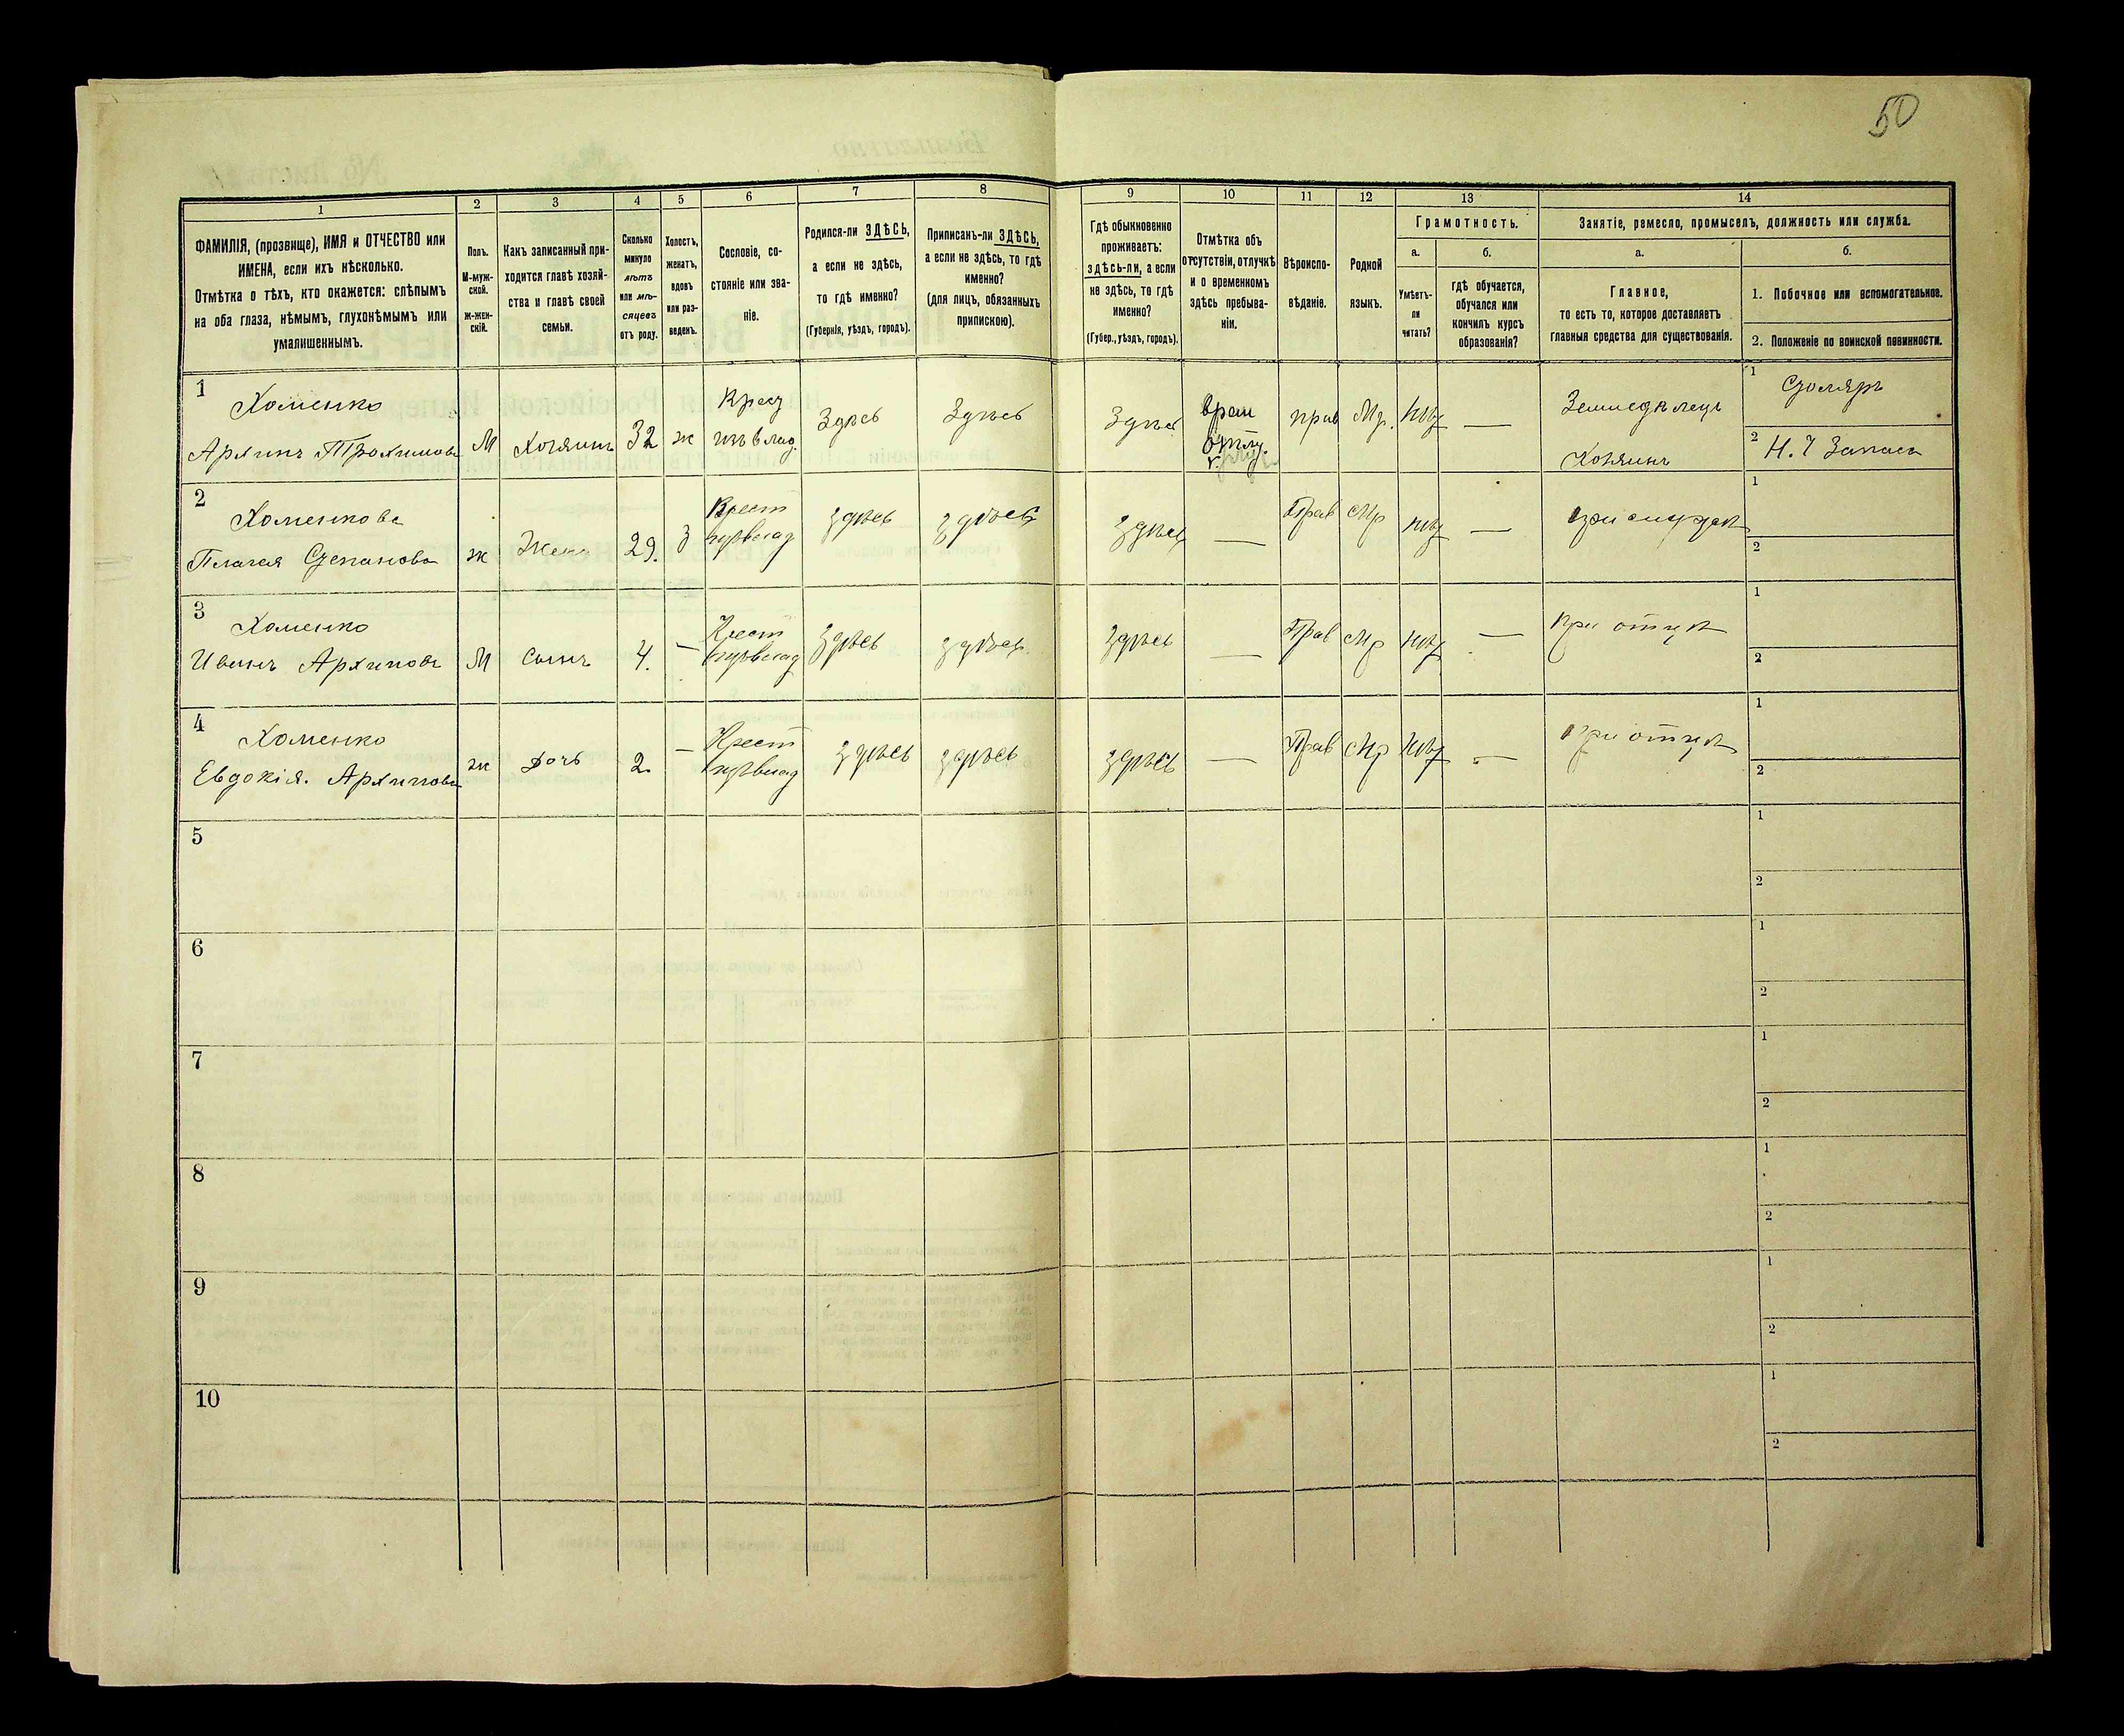 50
1
2
3
4
5
6
7
8
9
10
11
12
13
14
ФАМИЛІЯ, (прозвище), ИМЯ и ОТЧЕСТВО или
ИМЕНА, если ихъ нѣсколько.
Отмѣтка о тѣхъ, кто окажется: слѣпымъ
на оба глаза, нѣмымъ, глухонѣмымъ или
умалишеннымъ.
Полъ.
М-муж-
ской.
ж-жен-
скій.
Какъ записанный при-
ходится главѣ хозяй-
ства и главѣ своей
семьи.
Сколько
минуло
лѣтъ
или мѣ-
сяцевъ
отъ роду.
Холостъ,
женатъ,
вдовъ
или раз-
веденъ.
Сословіе, со-
стояніе или зва-
ніе.
Родился-ли ЗДѢСЬ,
а если не здѣсь,
то гдѣ именно?
(Губернія, уѣздъ, городъ).
Приписанъ-ли ЗДѢСЬ,
а если не здѣсь, то гдѣ
именно?
(для лицъ, обязанныхъ
припискою).
Гдѣ обыкновенно
проживаетъ:
здѣсь-ли, а если
не здѣсь, то гдѣ
именно?
(Губер., уѣздъ, городъ).
Отмѣтка объ
отсутствіи, отлучкѣ
и о временномъ
здѣсь пребыва-
ніи.
Вѣроиспо-
вѣданіе.
Родной
языкъ.
Грамотность.
а.
Умѣетъ-
ли
читать?
б.
гдѣ обучается,
обучался или
кончилъ курсъ
образованія?
Занятіе, ремесло, промыселъ, должность или служба.
а.
Главное,
то есть то, которое доставляетъ
главныя средства для существованія.
б.
1. Побочное или вспомогательное.
2. Положеніе по воинской повинности.
1
Хоменко
Архипъ Трохимовъ
М
Хозяинъ
32
ж
Крест
изъ влад.
Здѣсь
Здѣсь
Здѣсь
врем
прав
Мр.
нѣт
—
Земледѣлецъ
Хозяинъ
1
Столяръ
2
Н. Ч Запаса
2
Хоменкова
Пелагея Степанова
ж
Жена
29.
з
Крест
изъ влад
здѣсь
здѣсь
здѣсь
—
Прав
Мр
нѣт
—
при мужѣ
1
2
3
Хоменко
Иванъ Архиповъ
М
сынъ
4.
—
Крест
изъ влад
здѣсь
здѣсь
здѣсь
—
Прав
Мр
нѣт
—
при отцѣ
1
2
4
Хоменко
Евдокія. Архипова
ж
дочь
2
—
Крест
изъ влад
здѣсь
здѣсь
здѣсь
—
Прав
Мр
нѣт
—
при отцѣ
1
2
5
1
2
6
1
2
7
1
2
8
1
2
9
1
2
10
1
2